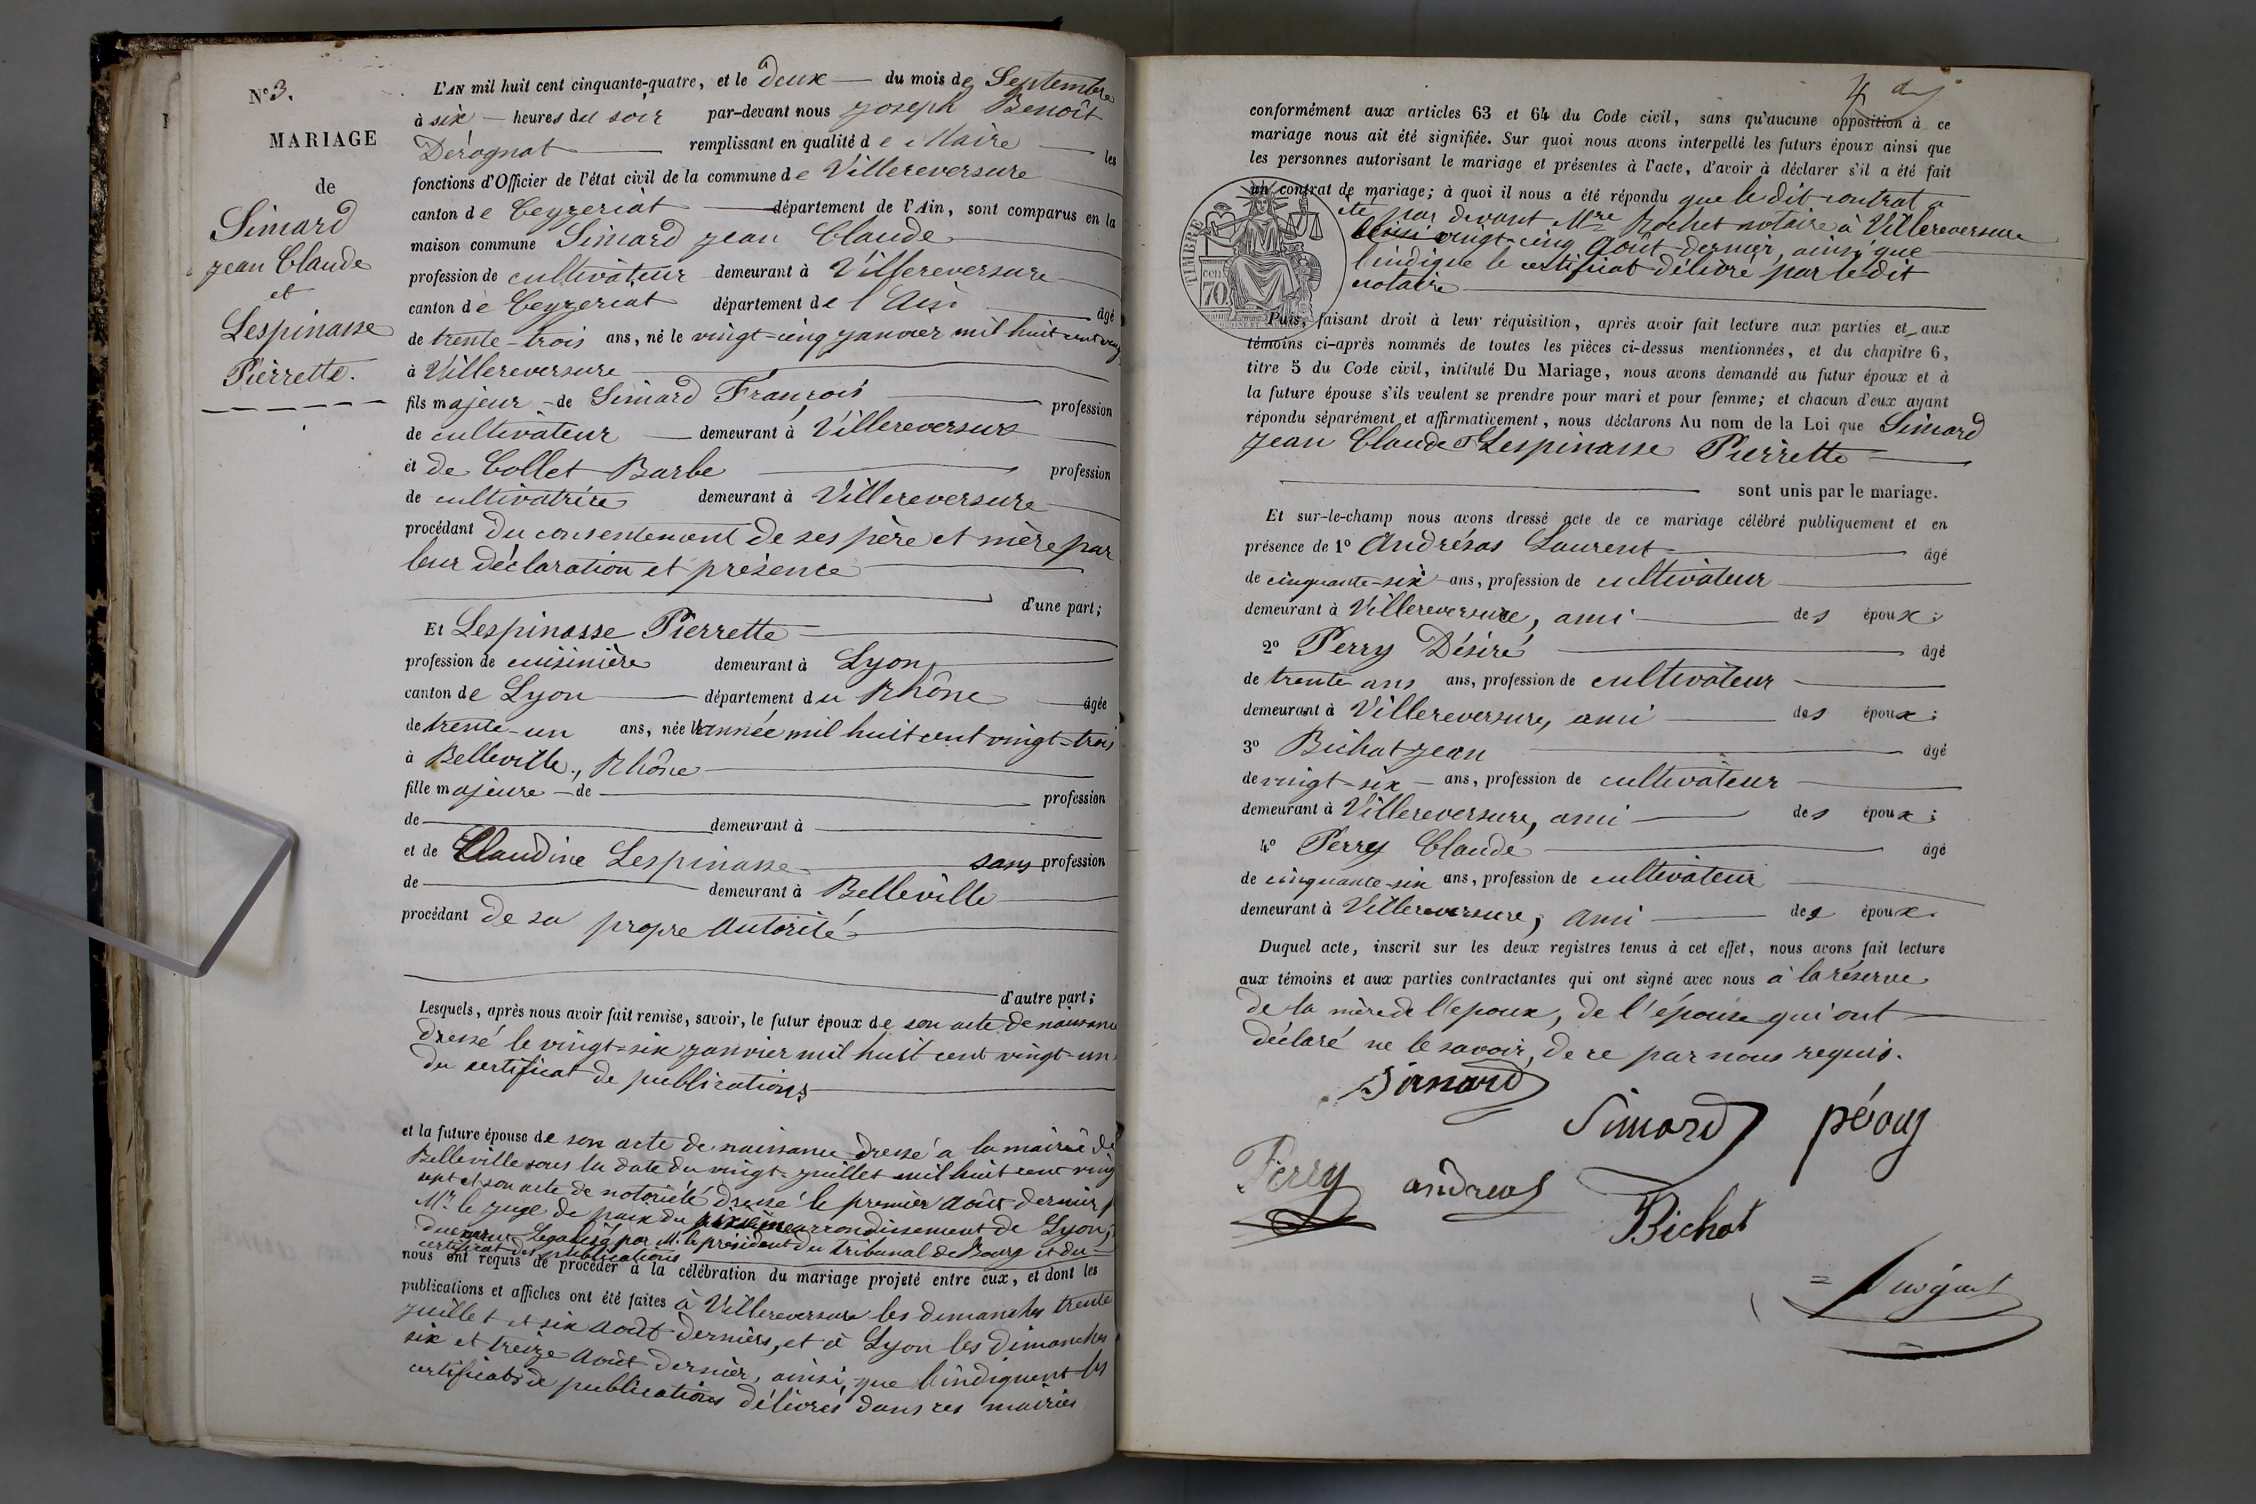 N° 3.
MARIAGE
de
Simard
Jean Claude
et
Lespinasse
Pierrette.
L'AN mil huit cent cinquante-quatre, et le deux du mois de Septembre
à six heures du soir par-devant nous Joseph Benoît
Dérognat remplissant en qualité de Maire les
fonctions d'Officier de l'état civil de la commune de Villereversure
canton de Ceyzeriat département de l'Ain, sont comparus en la
maison commune Simard Jean Claude
profession de cultivateur demeurant à Villereversure
canton de Ceyzeriat département de l'Ain âgé
de trente-trois ans, né le vingt-cinq janvier mil huit cent vingt
à Villereversure
fils majeur de Simard François profession
de cultivateur demeurant à Villereversure
et de Collet Barbe profession
de cultivatrice demeurant à Villereversure
procédant du consentement de ses père et mère par
leur déclaration et présence
d'une part;
Et Lespinasse Pierrette
profession de cuisinière demeurant à Lyon
canton de Lyon département du Rhône âgée
de trente-un ans, née l'année mil huit cent vingt-trois
à Belleville, Rhône
fille majeure de profession
de demeurant à
et de Claudine Lespinasse sans profession
de demeurant à Belleville
procédant de sa propre autorité
d'autre part;
Lesquels, après nous avoir fait remise, savoir, le futur époux de son acte de naissance
dressé le vingt-six janvier mil huit cent vingt-un
du certificat de publications
et la future épouse de son acte de naissance dressé à la mairie de
Belleville sous la date du vingt juillet mil huit cent vingt
sept et son acte de notoriété dressé le premier août dernier
Mr. le juge de paix du arrondissement de Lyon,
Legalisé par Mr. le président du tribunal de Bourg et du
certificat des publications
nous ont requis de procéder à la célébration du mariage projeté entre eux, et dont les
publications et affiches ont été faites à Villereversure les dimanches trente
juillet et six août derniers, et à Lyon les dimanches
six et treize août dernier, ainsi que l'indiquent les
certificats de publications délivrés dans ces mairies
conformément aux articles 63 et 64 du Code civil, sans qu'aucune opposition à ce
mariage nous ait été signifiée. Sur quoi nous avons interpellé les futurs époux ainsi que
les personnes autorisant le mariage et présentes à l'acte, d'avoir à déclarer s'il a été fait
un contrat de mariage; à quoi il nous a été répondu que le dit contrat a
été par devant Mre Rochet notaire à Villereversure
vingt-cinq août dernier, ainsi que
l'indique le certificat délivré par le dit
notaire
TIMBRE
cen
70
Puis, faisant droit à leur réquisition, après avoir fait lecture aux parties et aux
témoins ci-après nommés de toutes les pièces ci-dessus mentionnées, et du chapitre 6,
titre 5 du Code civil, intitulé Du Mariage, nous avons demandé au futur époux et à
la future épouse s'ils veulent se prendre pour mari et pour femme; et chacun d'eux ayant
répondu séparément et affirmativement, nous déclarons Au nom de la Loi que Simard
Jean Claude & Lespinasse Pierrette
sont unis par le mariage.
Et sur-le-champ nous avons dressé acte de ce mariage célébré publiquement et en
présence de 1° Andréas Laurent âgé
de cinquante-six ans, profession de cultivateur
demeurant à Villereversure, ami des époux;
2° Perry Désiré âgé
de trente ans ans, profession de cultivateur
demeurant à Villereversure, ami des époux;
3° Bichat Jean âgé
de vingt-six ans, profession de cultivateur
demeurant à Villereversure, ami des époux;
4° Perrey Claude âgé
de cinquante-six ans, profession de cultivateur
demeurant à Villereversure, ami des époux.
Duquel acte, inscrit sur les deux registres tenus à cet effet, nous avons fait lecture
aux témoins et aux parties contractantes qui ont signé avec nous à la réserve
de la mère de l'époux, de l'épouse qui ont
déclaré ne le savoir, de ce par nous requis.
Simard
Simard
Perey
andreas
Bichat